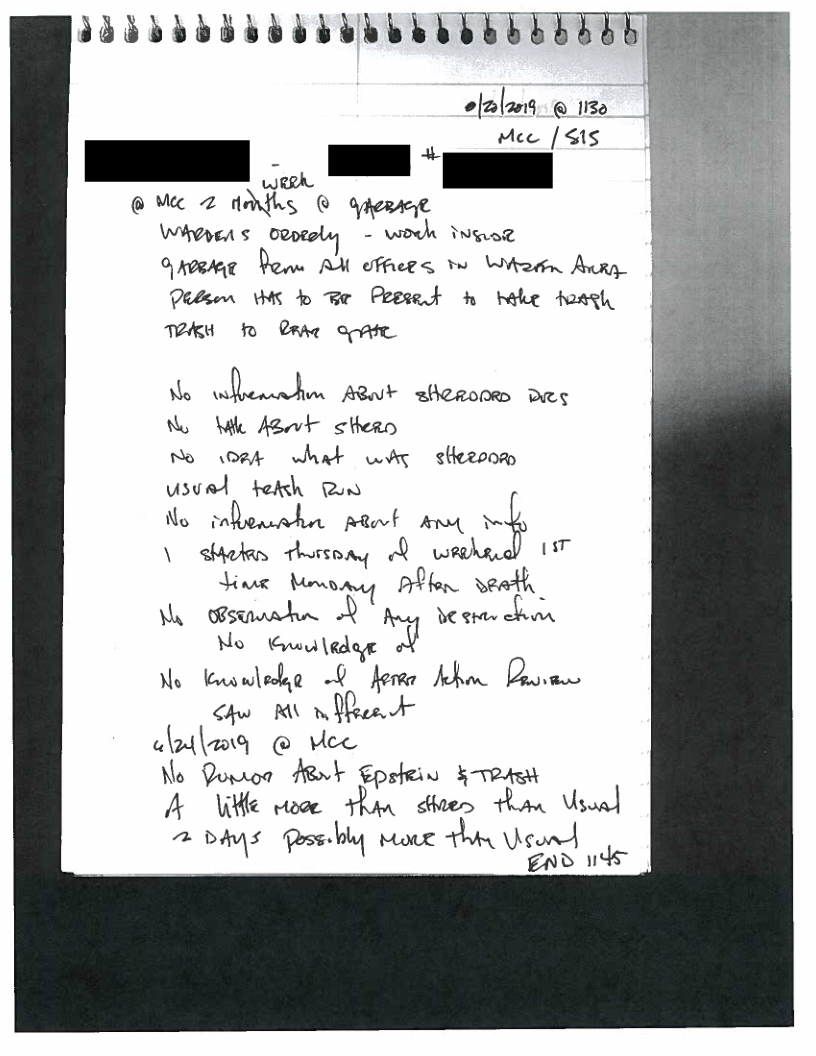 /20/2019 @ 1130
MCC / SIS
- #
WEEK
@ MCC 2 MONTHS @ GARBAGE
WARDENS ORDERLY - WORK INSIDE
GARBAGE FROM All OFFICES IN WARDEN AREA
PERSON HAS to BE PRESENT to tAKE tRASH
TRASH to REAR GATE
No information ABout SHREDDED DOCS
No tAlk ABout SHRED
No IDEA whAt wAS SHREDDED
USUAl tRASH RUN
No information ABout ANY info
1 StARTED tHURSDAY of wEEKEND 1ST
time MONDAY AFter DEATH
No OBSERVAtion of Any DEStruction
No Knowledge of
No Knowledge of AFTER Action REVIEW
SAW All
/2019 @ MCC
No RUMOR ABout EpstEIN & TRASH
A little MORE thAN SHRED thAN USUAl
2 DAYS Possibly MORE thAN USUAl
END 1145